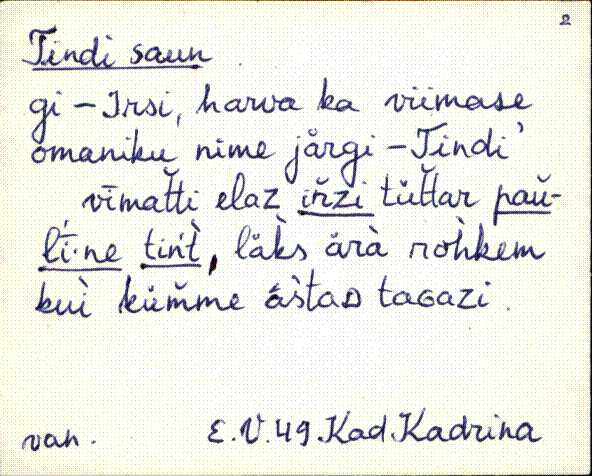 2
Tindi saun
gi – Irsi, harva ka viimase
omaniku nime järgi – Tindi'
vīmat̆ti elaz iř̆zi tüt̆tar paŭ̯-
lí·ne tiń̀t̀, läk̀s ärà roh̀kem
kuì küm̆me ás̀taᴅ taɢazi.
van. E. V. 49. Kad. Kadrina